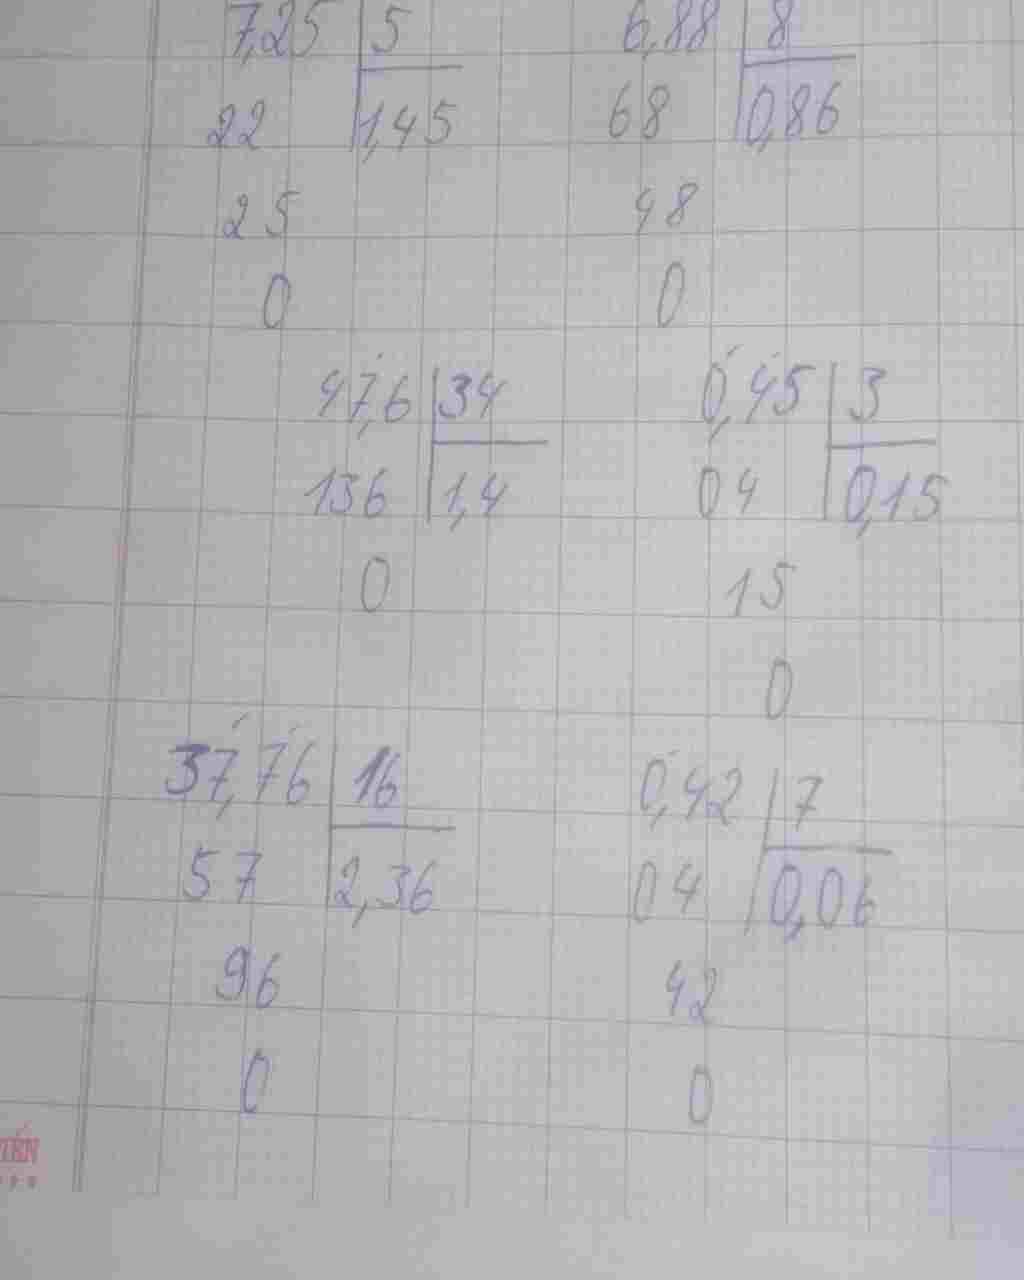 7,25 5 6,88 8
22 1,45 68 0,86
25 48
0 0
47,6 34 0,45 3
136 1,4 04 0,15
0 15
0
37,76 16 0,42 7
57 2,36 04 0,06
96 42
0 0